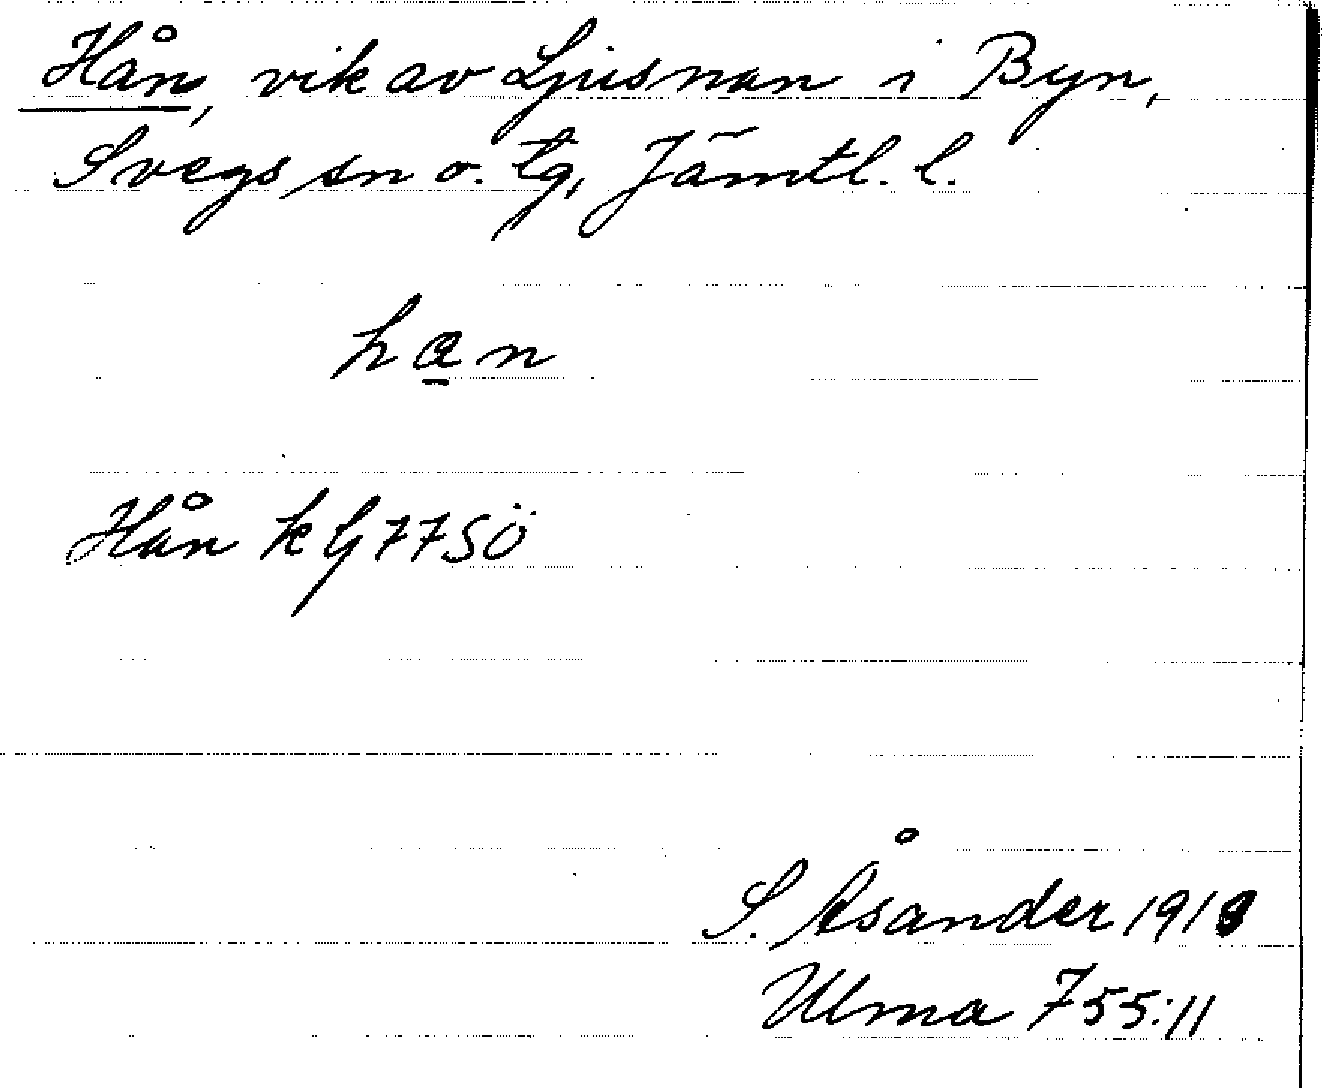 Hån, vik av Ljusnan i Byn,
Svegs sn o. tg, Jämtl. l.
han
Hån kG77SÖ
S. Åsander 1918
Ulma 755:11